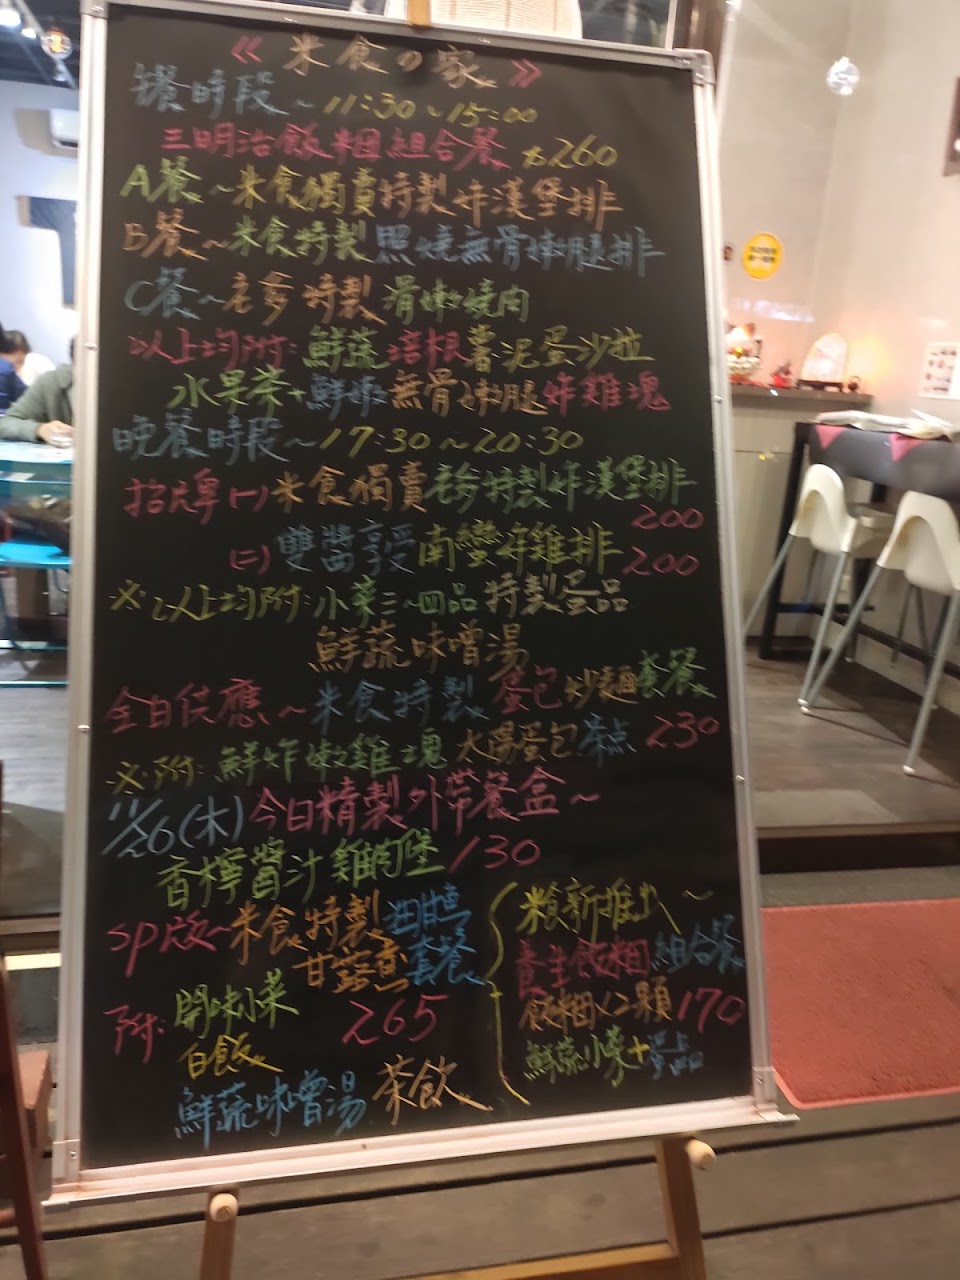 《米食の家》
餐時段~11:30~15:00
三明治飯糰組合餐 $260
A餐~米食獨賣特製炸漢堡排
B餐~米食特製照燒無骨嫩腿排
C餐~老爹特製滑嫩燒肉
以上均附:鮮蔬培根薯泥蛋沙拉
水果茶+鮮嫩無骨嫩腿炸雞塊
晚餐時段~17:30~20:30
招牌(一)米食獨賣老爹特製炸漢堡排
200
(二)雙醬享受南蠻炸雞排200
※以上均附:小菜三~四品特製蛋品
鮮蔬味噌湯
全日供應~米食特製蛋包炒麵套餐
※附:鮮炸嫩雞塊太陽蛋包茶點 230
11/26(木)今日精製外帶餐盒~
香檸醬汁雞肉堡130
SP版~米食特製
甘蔗煮套餐
附:開味小菜 265
白飯
鮮蔬味噌湯 茶飲
米食新推出~
養生飯糰組合餐
飯糰×2顆170
鮮蔬小菜+